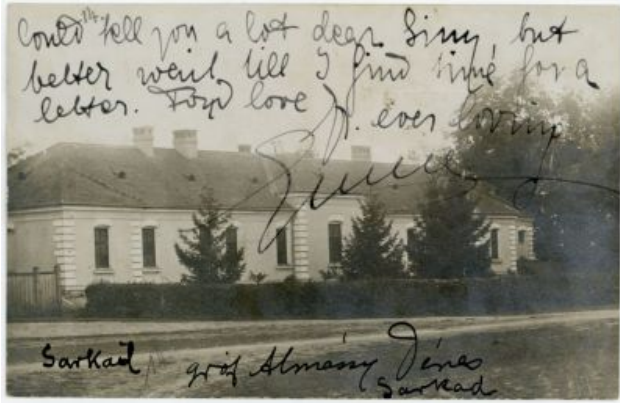 Could tell you a lot dear but
better wait till I find time for a
letter. Fond love ever loving
Sarkad
gróf Almássy Dénes
Sarkad